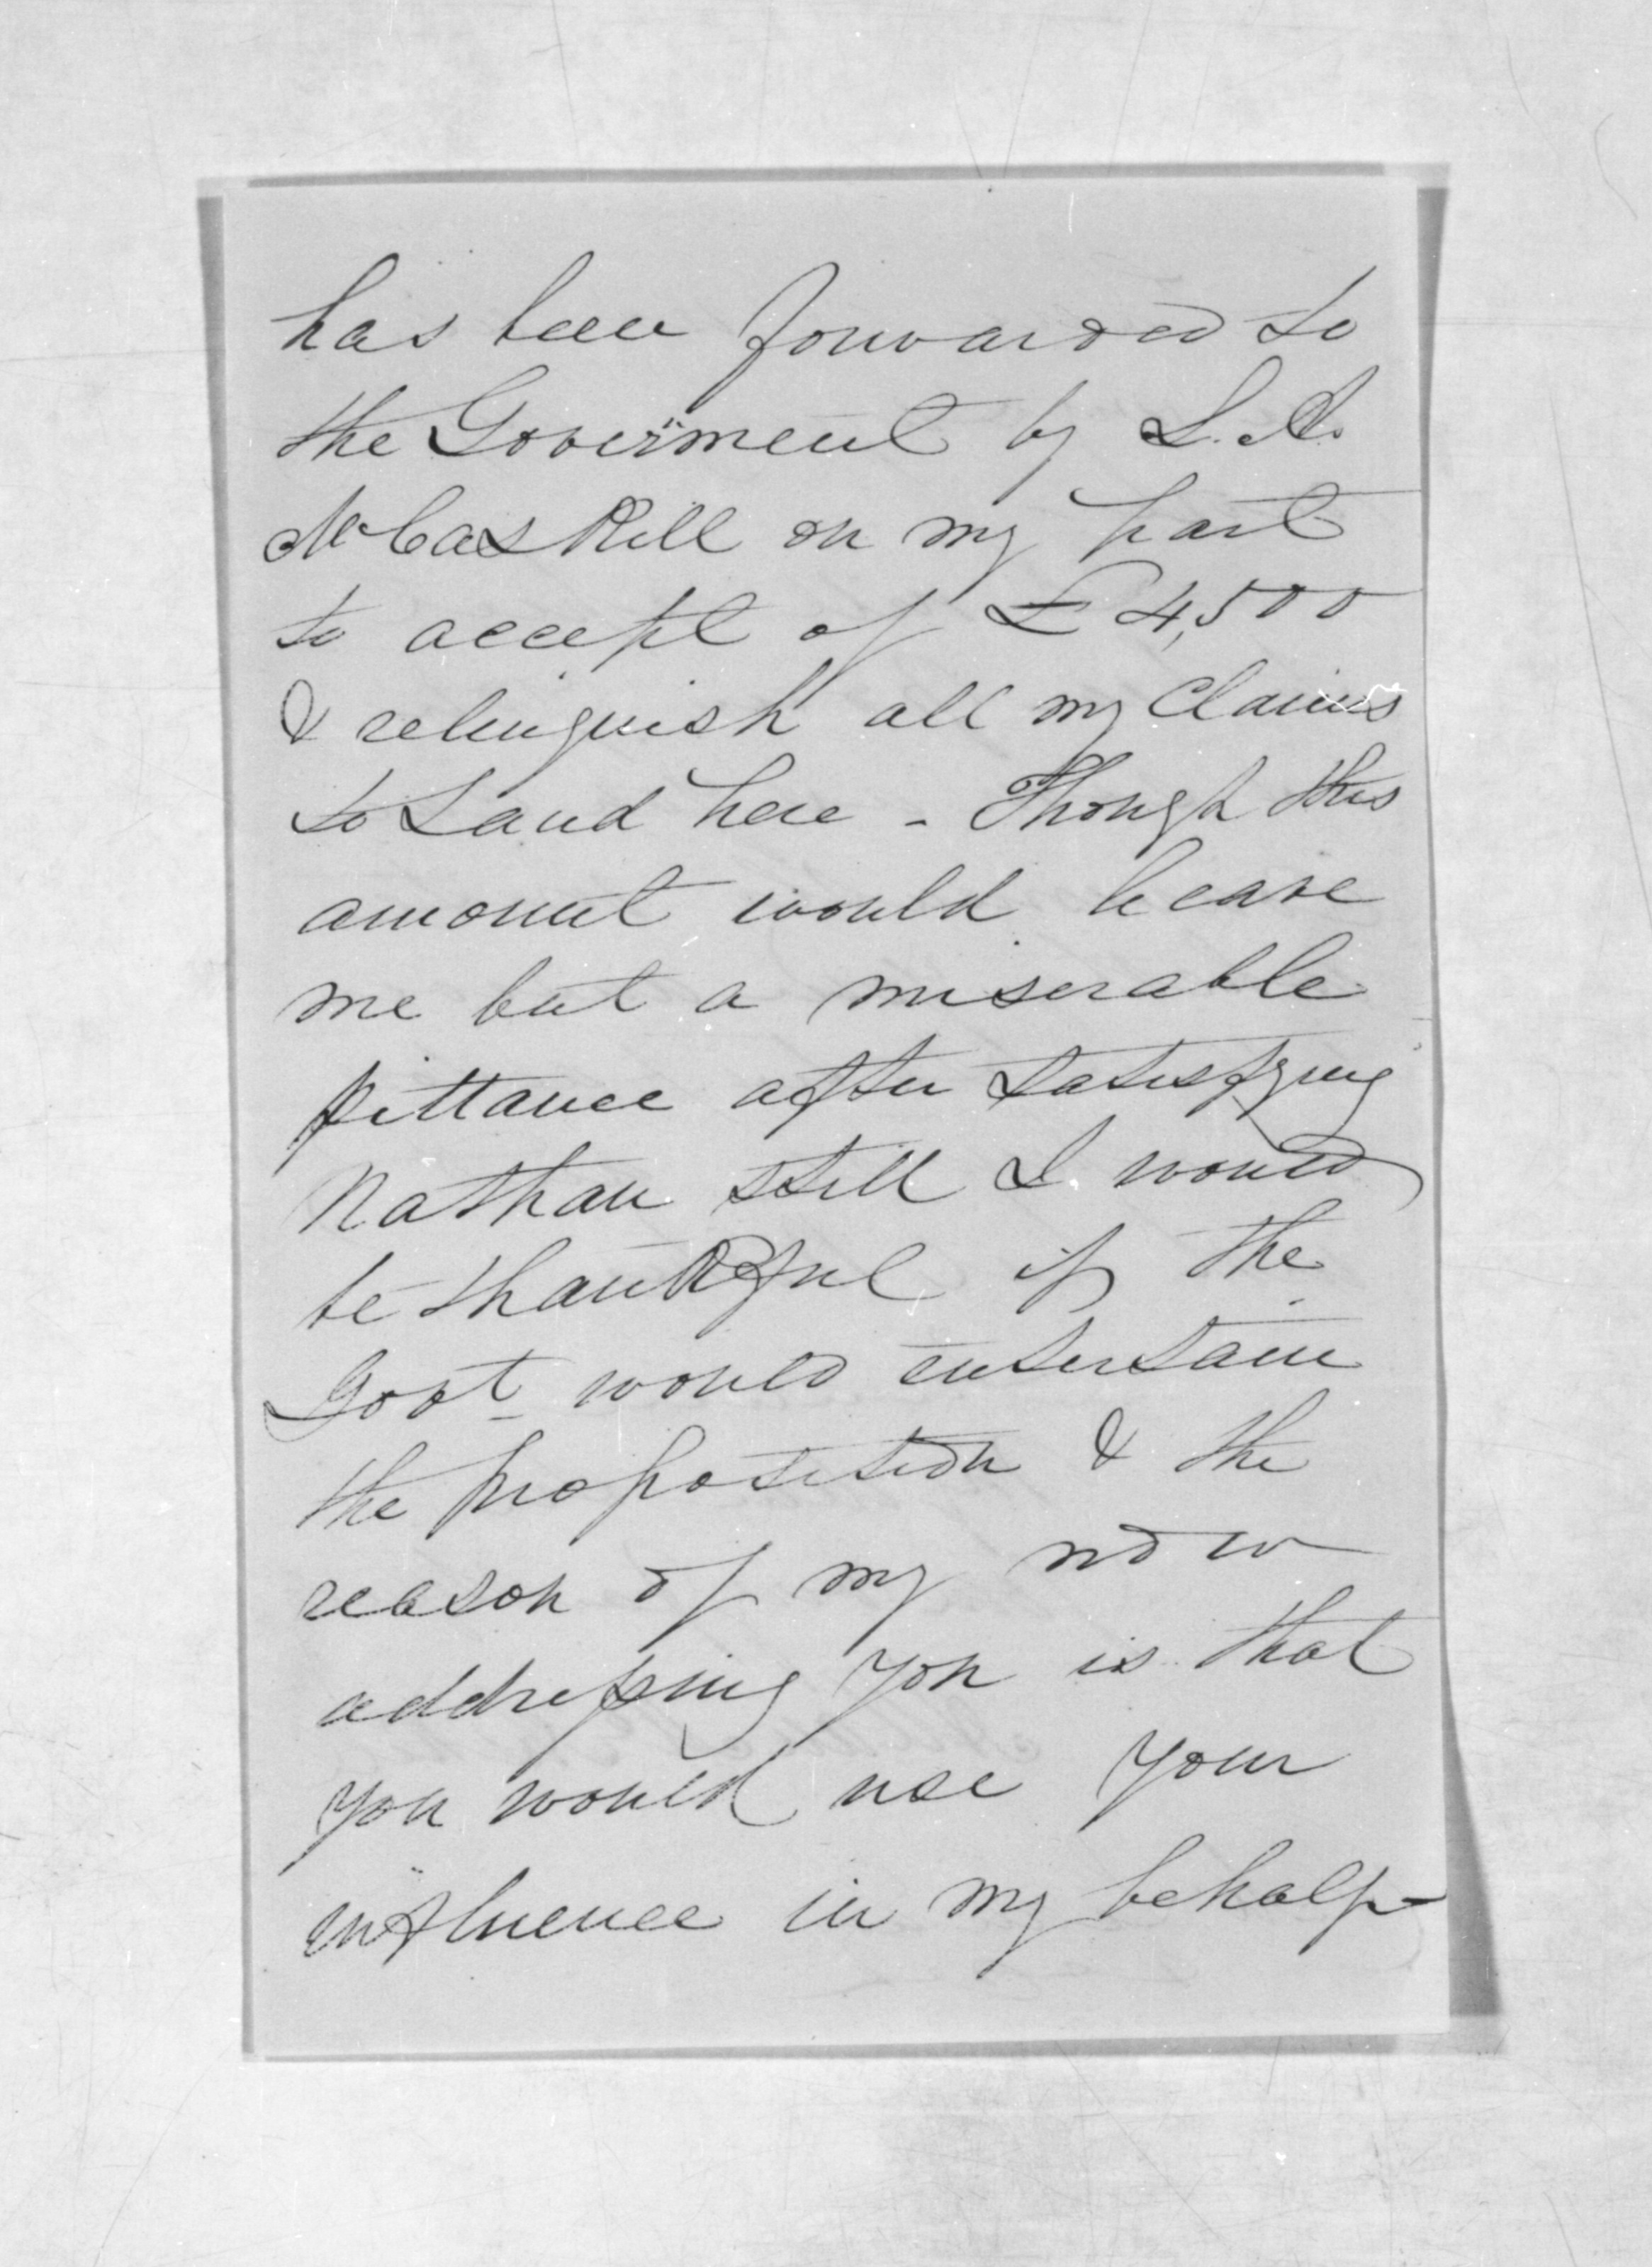 has been forwarded to
the Goverment by L. A.
McCaskill on my part
to accept of £4,500
& relinquish all my Claims
to Land here - Though this
amount would leave
me but a miserable
pittance after satisfying
Nathan still I would
be thankful if the
Govt would entertain
the proposition & the
reason of my now
addressing you is that
you would use your
influence in my behalf